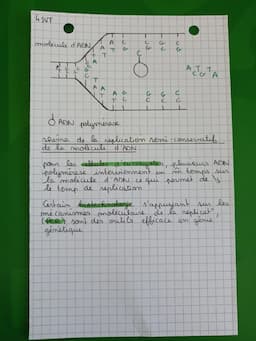 4 SVT
molécule d'ADN
A A C C G C
T T G G C G
A T T
C G A
A A G G C
T T C C C
ADN polymérase
Schéma de la réplication semi-conservatif
de la molécule d'ADN
pour les plusieurs ADN
polymérase interviennent en m̂ temps sur
la molécule d'ADN ce qui permet de
le temps de réplication
Certain s'appuyant sur les
mécanismes moléculaire de la réplicat°
sont des outils efficace en génie
génétique